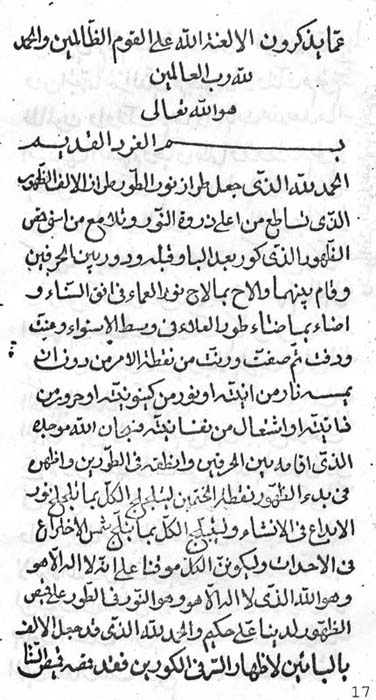 عما يذكرون الا لعنة الله على القوم الظالمين والحمد
لله رب العالمين
هو الله تعالى
بسم الفرد القديم
الحمد لله الذى جعل طراز نور الطور طراز الالف الظهور
الذى تساطع من اعلى ذروة النور وتلامع من
الظهور الذى كور بعد الباء قبله ودور بين الحرفين
وقام بينهما والاح بما لاح نور العماء فى افق الثناء و
اضاء بما اضاء طور العلاء فى وسط الاسواء
ودقت ثم صفت من نقطة الامر من دون ان
يمسه نار من انيته او نور من كينونيته او
ذاتيته او اشتعال من نفسانيته فسبحان الله موجده
الذى اقامه بين الحرفين وانطقه فى الطورين واظهره
فى بدء الظهور نقطة الختمين ليتبلج الكل بما تبلج نور
الابداع فى الانشاء وليتبلج الكل بما تبلج شمس الاختراع
فى الاحداث وليكونن الكل موقنا على الله لا اله الا هو
وهو الله الذى لا اله الا هو وهو النور فى الطور على
الظهور لدينا على حكيم والحمد لله الذى قد جعل الالف
بالبائين لاظهار السر فى الكورين فقد
17